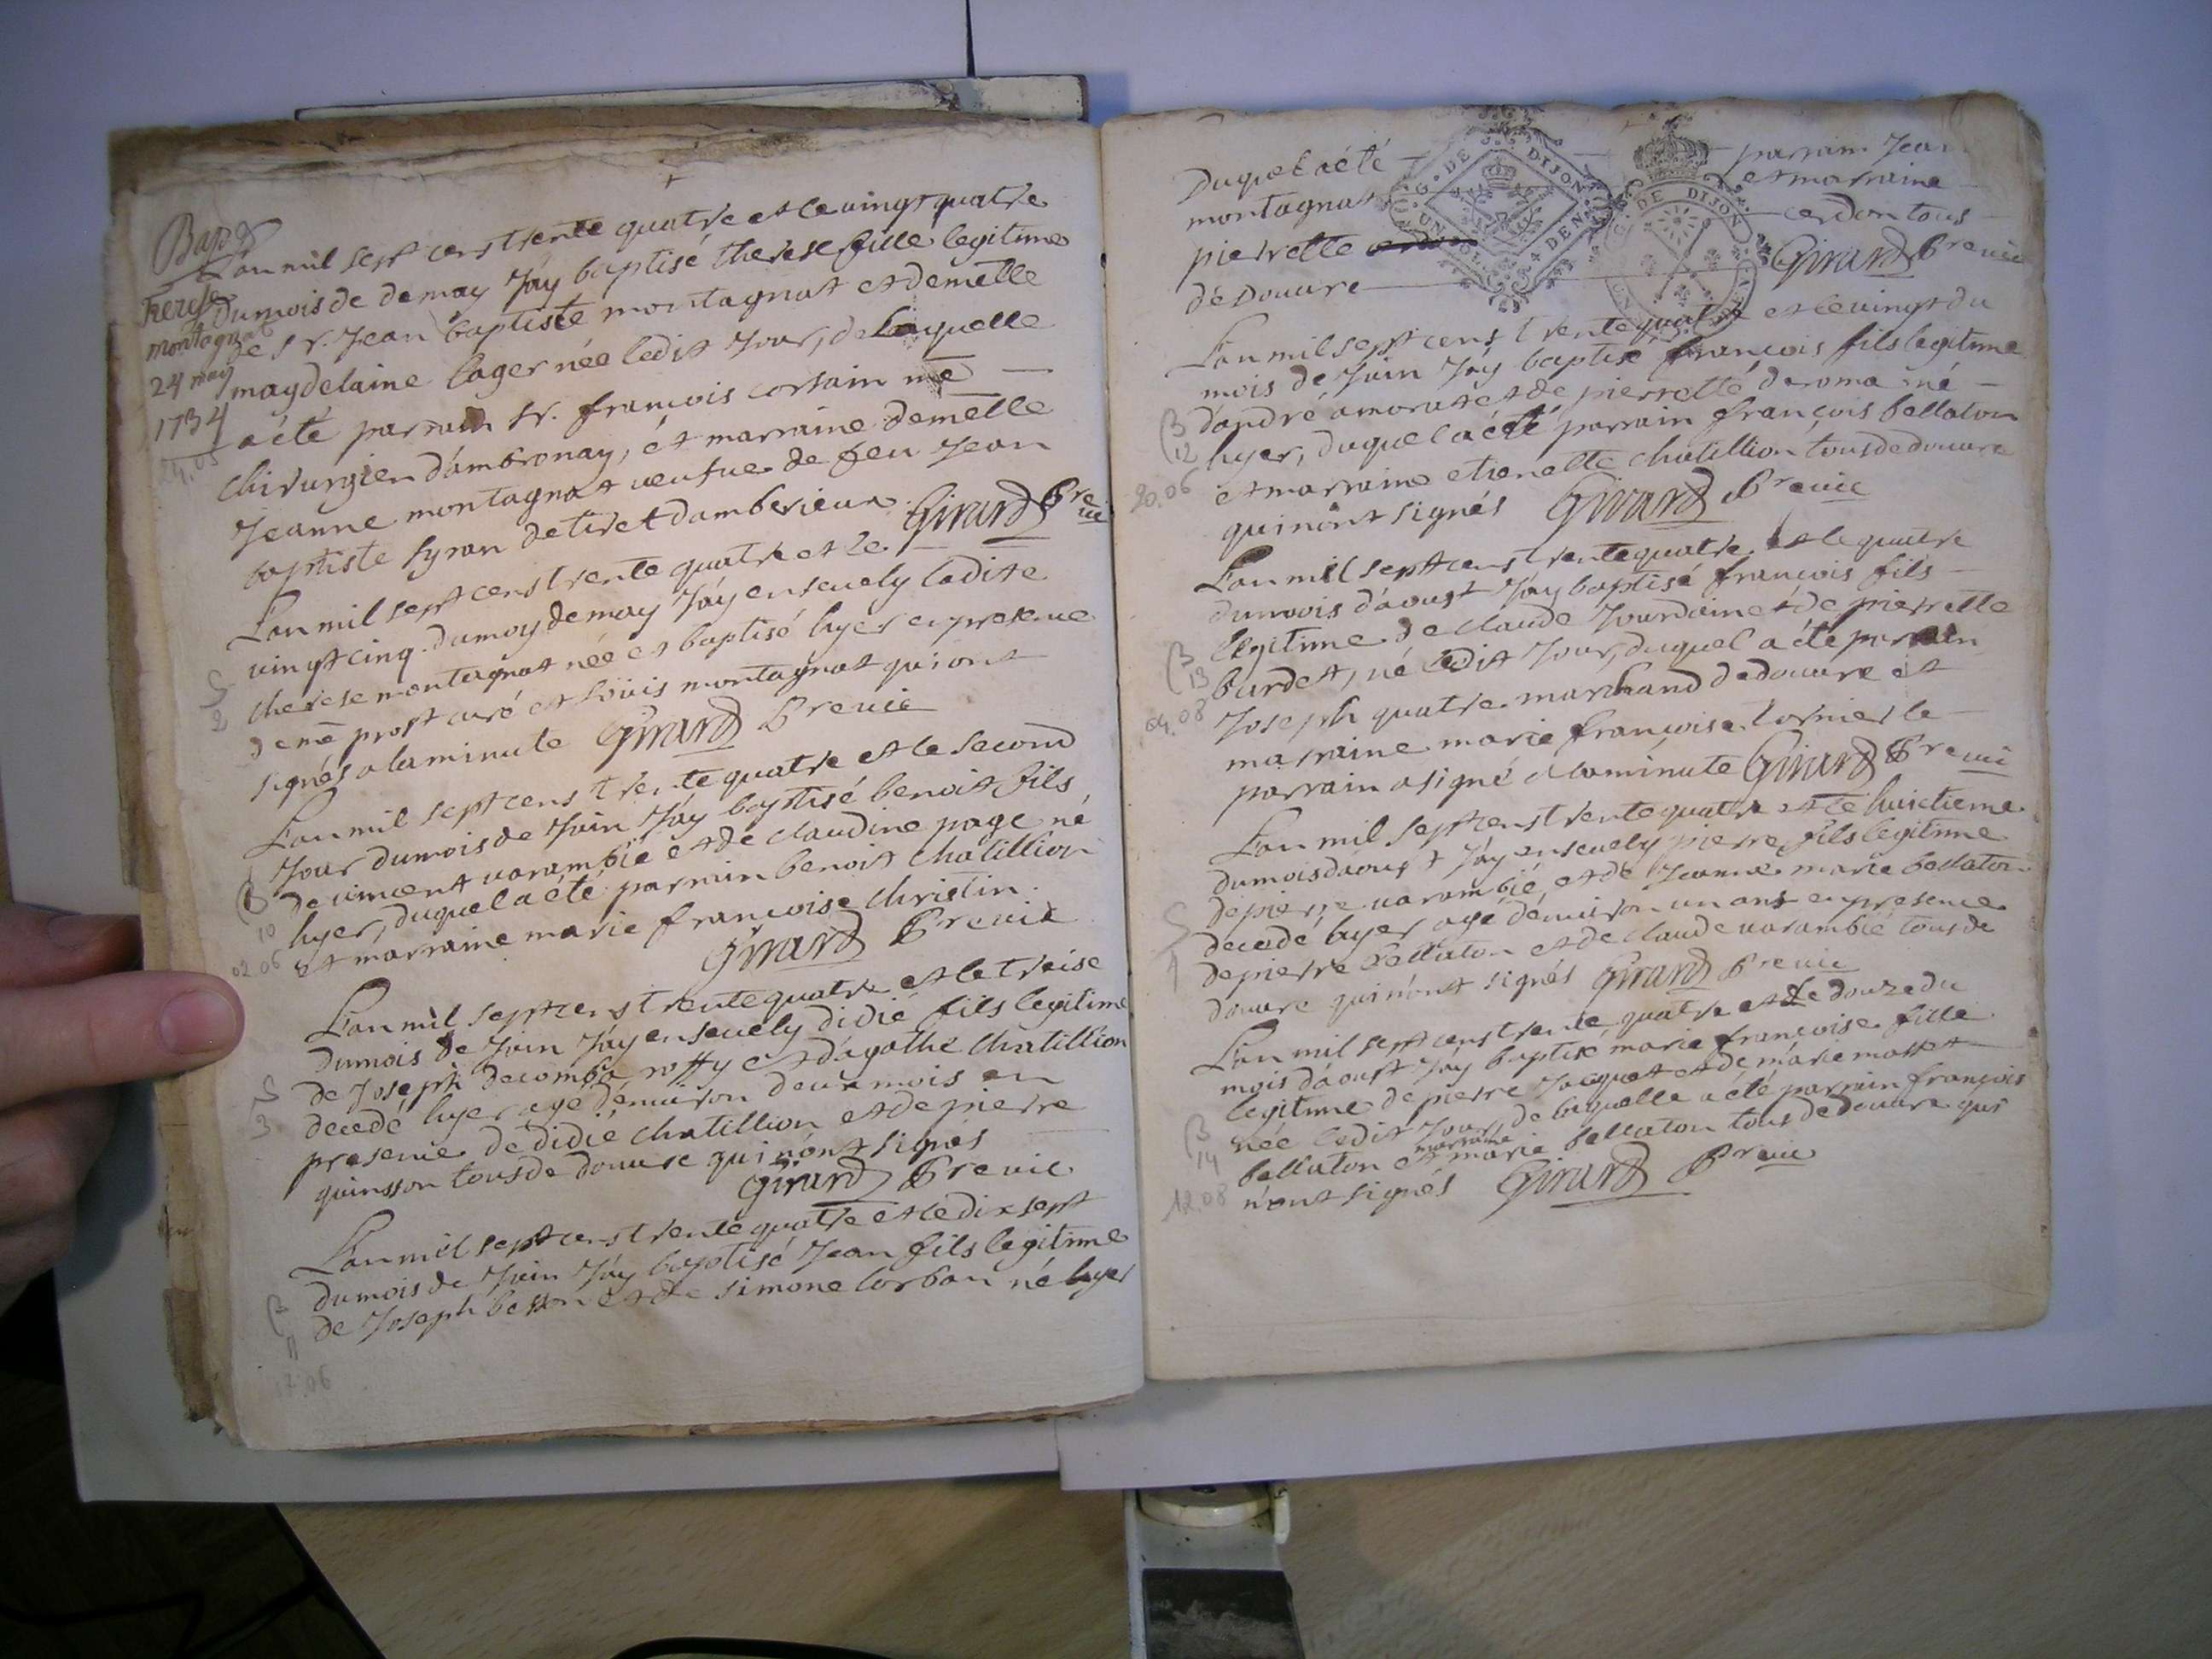 Bap
L'an mil sept cens trente quatre et le vingt quatre
Therese
dumois de de may J'ay baptisé therese fille legitime
montagnat
de Sr. Jean baptiste montagnat et demelle
24 may
magdelaine lager née ledit Jour, de laquelle
1734
a été parrain Sr. françois corsain me
24.05
chirurgien d'ambronay, et marraine demelle
Jeanne montagnat veufue de feu Jean
baptiste syran de tiret d'amberieux. Girard Pre vic
L'an mil sept cens trente quatre et le
vingt cinq. du moy de may J'ay enseuely ladite
therese montagnat née et baptisé hyer en presence
S
2
de me prost curé et Loüis montagnat qui ont
signés a la minute Girard Pre vic
L'an mil sept cens trente quatre et le second
Jour dumois de Juin J'ay baptisé benoit fils
de vincent varambié et de claudine page né
B
10
hyer, duquel a été parrain benoit chatillion
02.06
et marraine marie françoise christin.
Girard Pre vic
L'an mil sept cens trente quatre et le treise
dumois de Juin J'ay enseuely didié fils legitime
de Joseph decomba roffy et d'agathe chatillion
S
3
decedé hyer agé d'enuiron deux mois en
presence de didié chatillion et de pierre
quinsson tous de douure qui n'ont signés
Girard Pre vic
L'an mil sept cens trente quatre et le dix sept
dumois de Juin J'ay baptisé Jean fils legitime
B
11
de Joseph besson et de simone corban né hyer
17.06
Duquel a été parrain Jean
montagnat et marraine
pierrette cerdon tous
de Douure Girard Pre vic
G. DE DIJON
UN SOL 4 DEN
G. DE DIJON
L'an mil sept cens trente quatre et le vingt du
mois de Juin J'ay baptisé françois fils legitime
B
12
d'andré amorat et de pierrette daroma né
hyer, duquel a été parrain françois bellaton
20.06
et marraine etienette chatillion tous de douure
qui n'ont signés Girard Pre vic
L'an mil sept cens trente quatre et le quatre
dumois d'aoust J'ay baptisé françois fils
legitime de claude Jourdain et de pierrette
B
13
burdet, né ledit Jour, duquel a été parrain
04.08
Joseph quatre marchand de douure et
marraine marie françoise tornier le
parrain a signé a la minute Girard Pre vic
L'an mil sept cens trente quatre et le huictieme
dumois d'aoust J'ay enseuely pierre fils legitime
de pierre varambié, et de Jeanne marie bellaton
decedé hyer agé d'enuiron un ans en presence
S
4
de pierre bellaton et de claude varambié tous de
douure qui n'ont signés Girard Pre vic
L'an mil sept cens trente quatre et le douze du
mois d'aoust J'ay baptisé marie françoise fille
legitime de pierre Jacquet et de marie mollet
B
14
née ledit Jour, de laquelle a été parrain françois
marraine
bellaton et marie bellaton tous de douure qui
12.08
n'ont signés Girard Pre vic